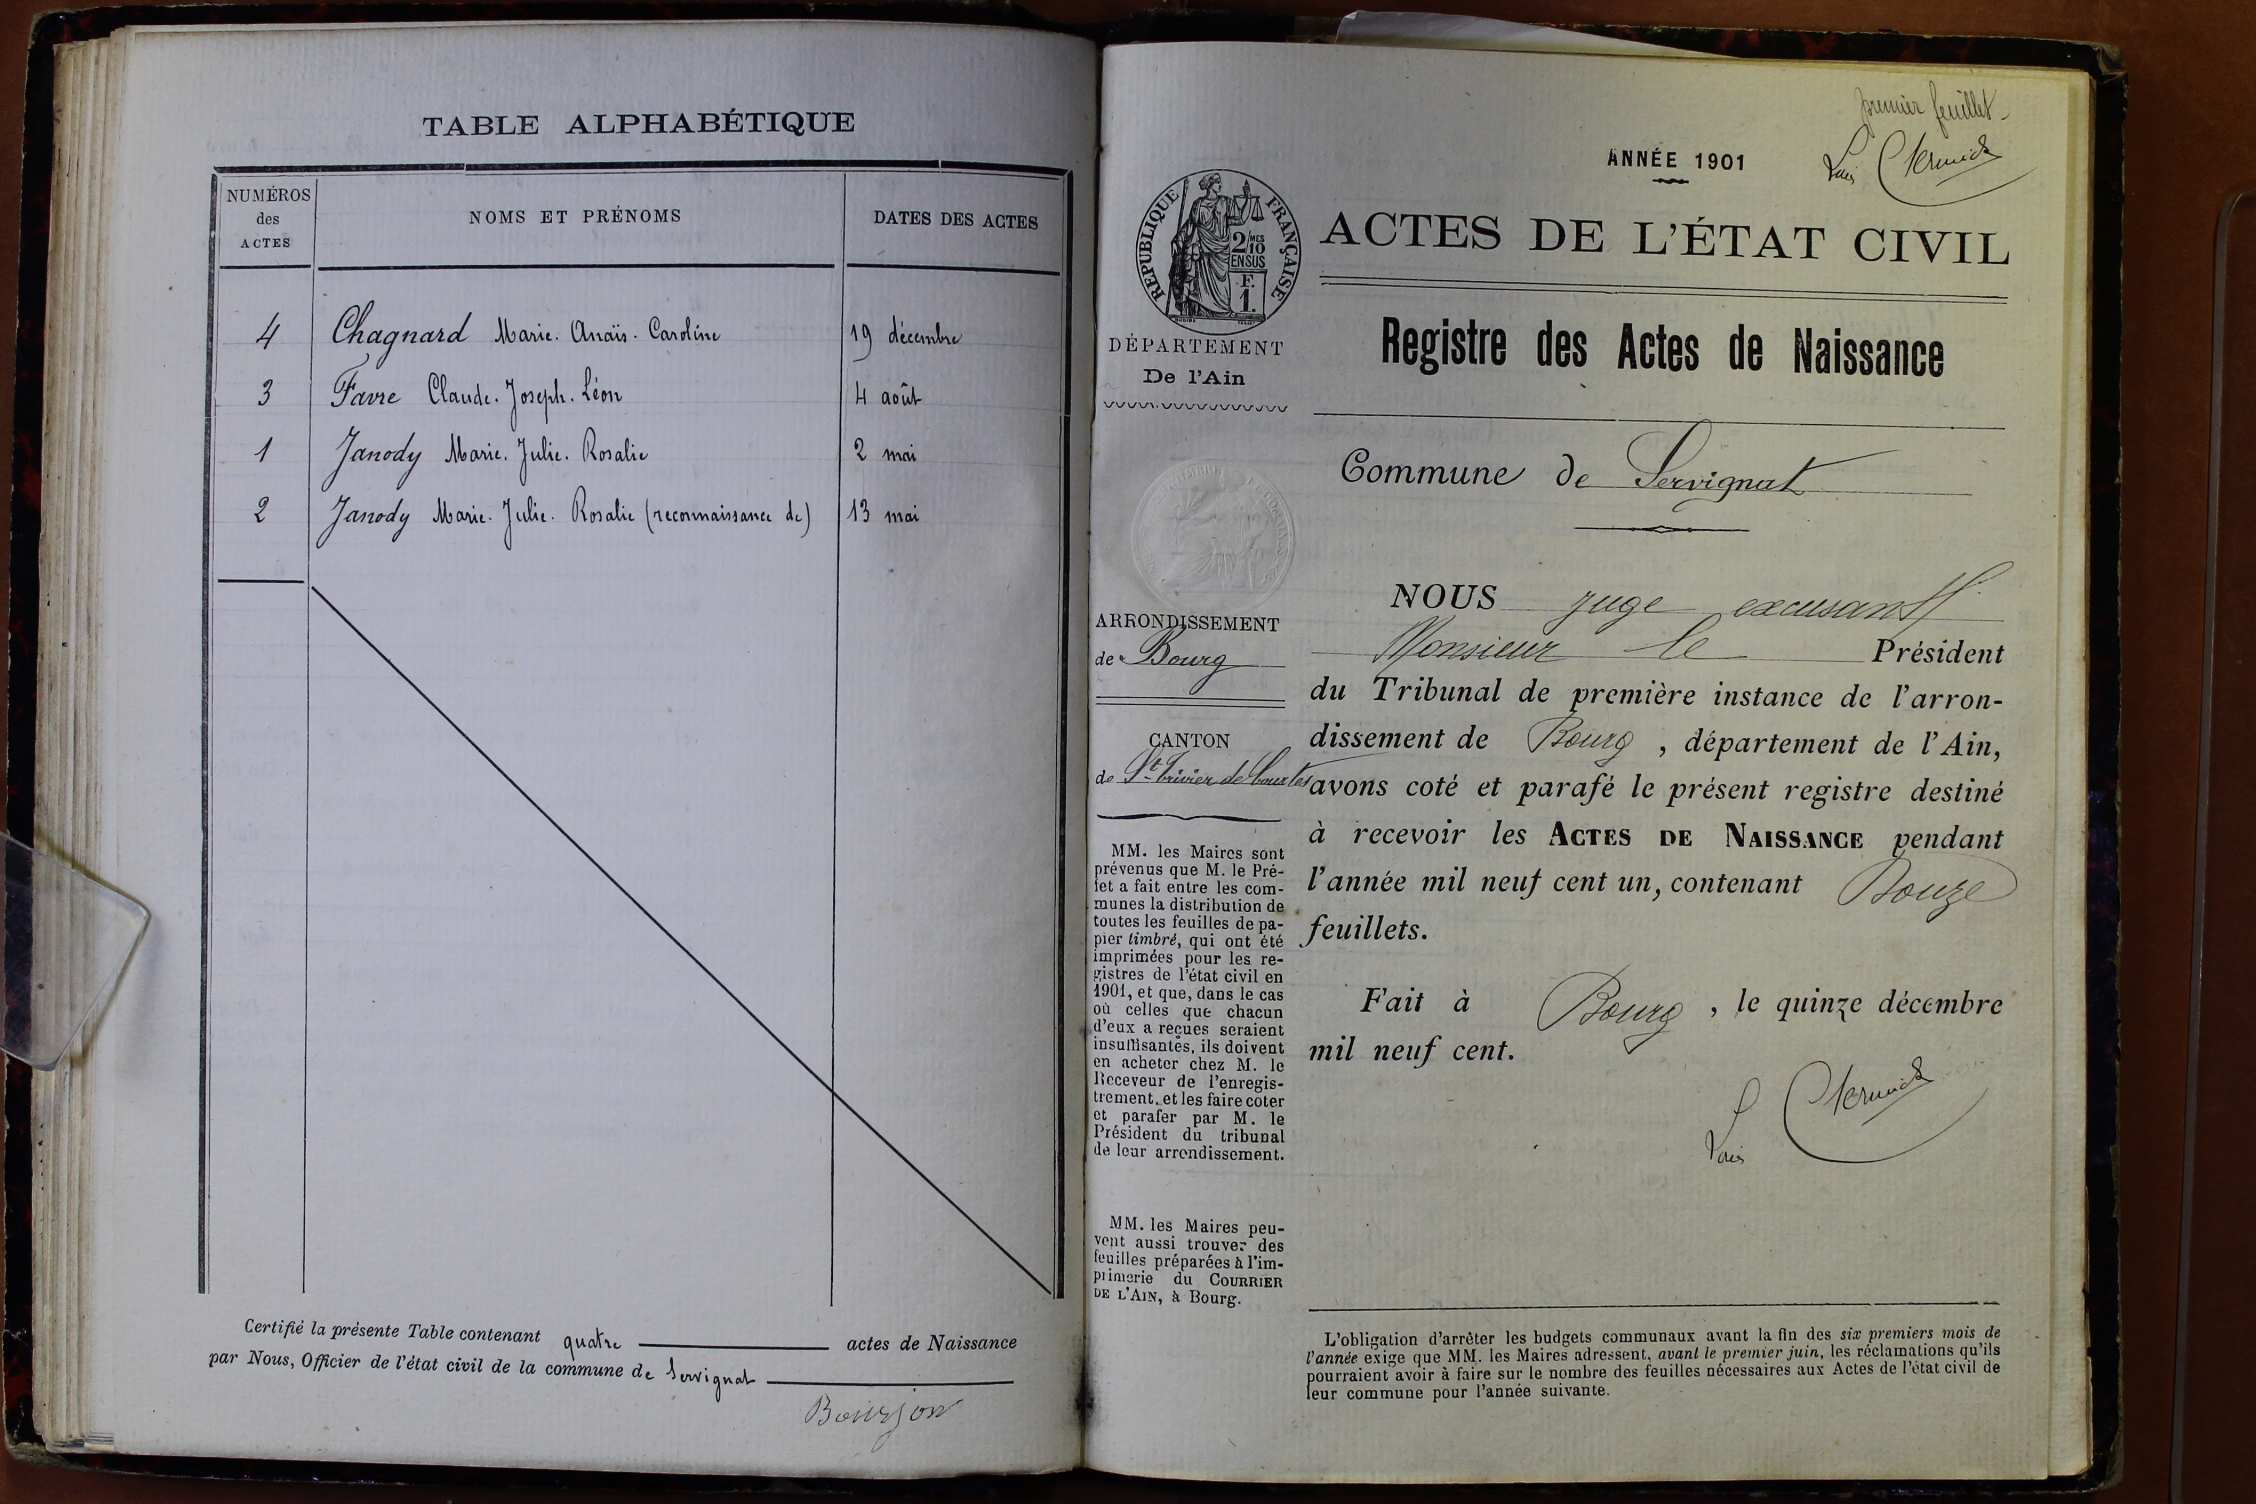 TABLE ALPHABÉTIQUE
NUMÉROS
des
ACTES
NOMS ET PRÉNOMS
DATES DES ACTES
4 Chagnard Marie. Anaïs. Caroline 19 décembre
3 Favre Claude. Joseph. Léon 4 août
1 Janody Marie. Julie. Rosalie 2 mai
2 Janody Marie. Julie. Rosalie (reconnaissance de) 13 mai
Certifié la présente Table contenant quatre actes de Naissance
par Nous, Officier de l'état civil de la commune de Servignat
premier feuillet
ANNÉE 1901
RÉPUBLIQUE FRANÇAISE
2/10 MES
EN SUS
F.
1.
ACTES DE L'ÉTAT CIVIL
DÉPARTEMENT
De l'Ain
Registre des Actes de Naissance
Commune de Servignat
ARRONDISSEMENT
de Bourg
CANTON
de St Trivier de Courtes
MM. les Maires sont
prévenus que M. le Pré-
fet a fait entre les com-
munes la distribution de
toutes les feuilles de pa-
pier timbré, qui ont été
imprimées pour les re-
gistres de l'état civil en
1901, et que, dans le cas
où celles que chacun
d'eux a reçues seraient
insuffisantes, ils doivent
en acheter chez M. le
Receveur de l'enregis-
trement, et les faire coter
et parafer par M. le
Président du tribunal
de leur arrondissement.
MM. les Maires peu-
vent aussi trouver des
feuilles préparées à l'im-
primerie du COURRIER
DE L'AIN, à Bourg.
NOUS juge excusant
Monsieur le Président
du Tribunal de première instance de l'arron-
dissement de Bourg, département de l'Ain,
avons coté et parafé le présent registre destiné
à recevoir les ACTES DE NAISSANCE pendant
l'année mil neuf cent un, contenant Douze
feuillets.
Fait à Bourg, le quinze décembre
mil neuf cent.
L'obligation d'arrêter les budgets communaux avant la fin des six premiers mois de
l'année exige que MM. les Maires adressent, avant le premier juin, les réclamations qu'ils
pourraient avoir à faire sur le nombre des feuilles nécessaires aux Actes de l'état civil de
leur commune pour l'année suivante.